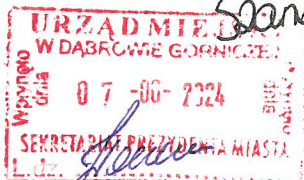 Szan
URZĄD MIE
W DĄBROWIE GÓRNICZEJ
Wpłynęło
dnia
07 -06- 2024
SEKRETARIAT PREZYDENTA MIASTA
L.dz.